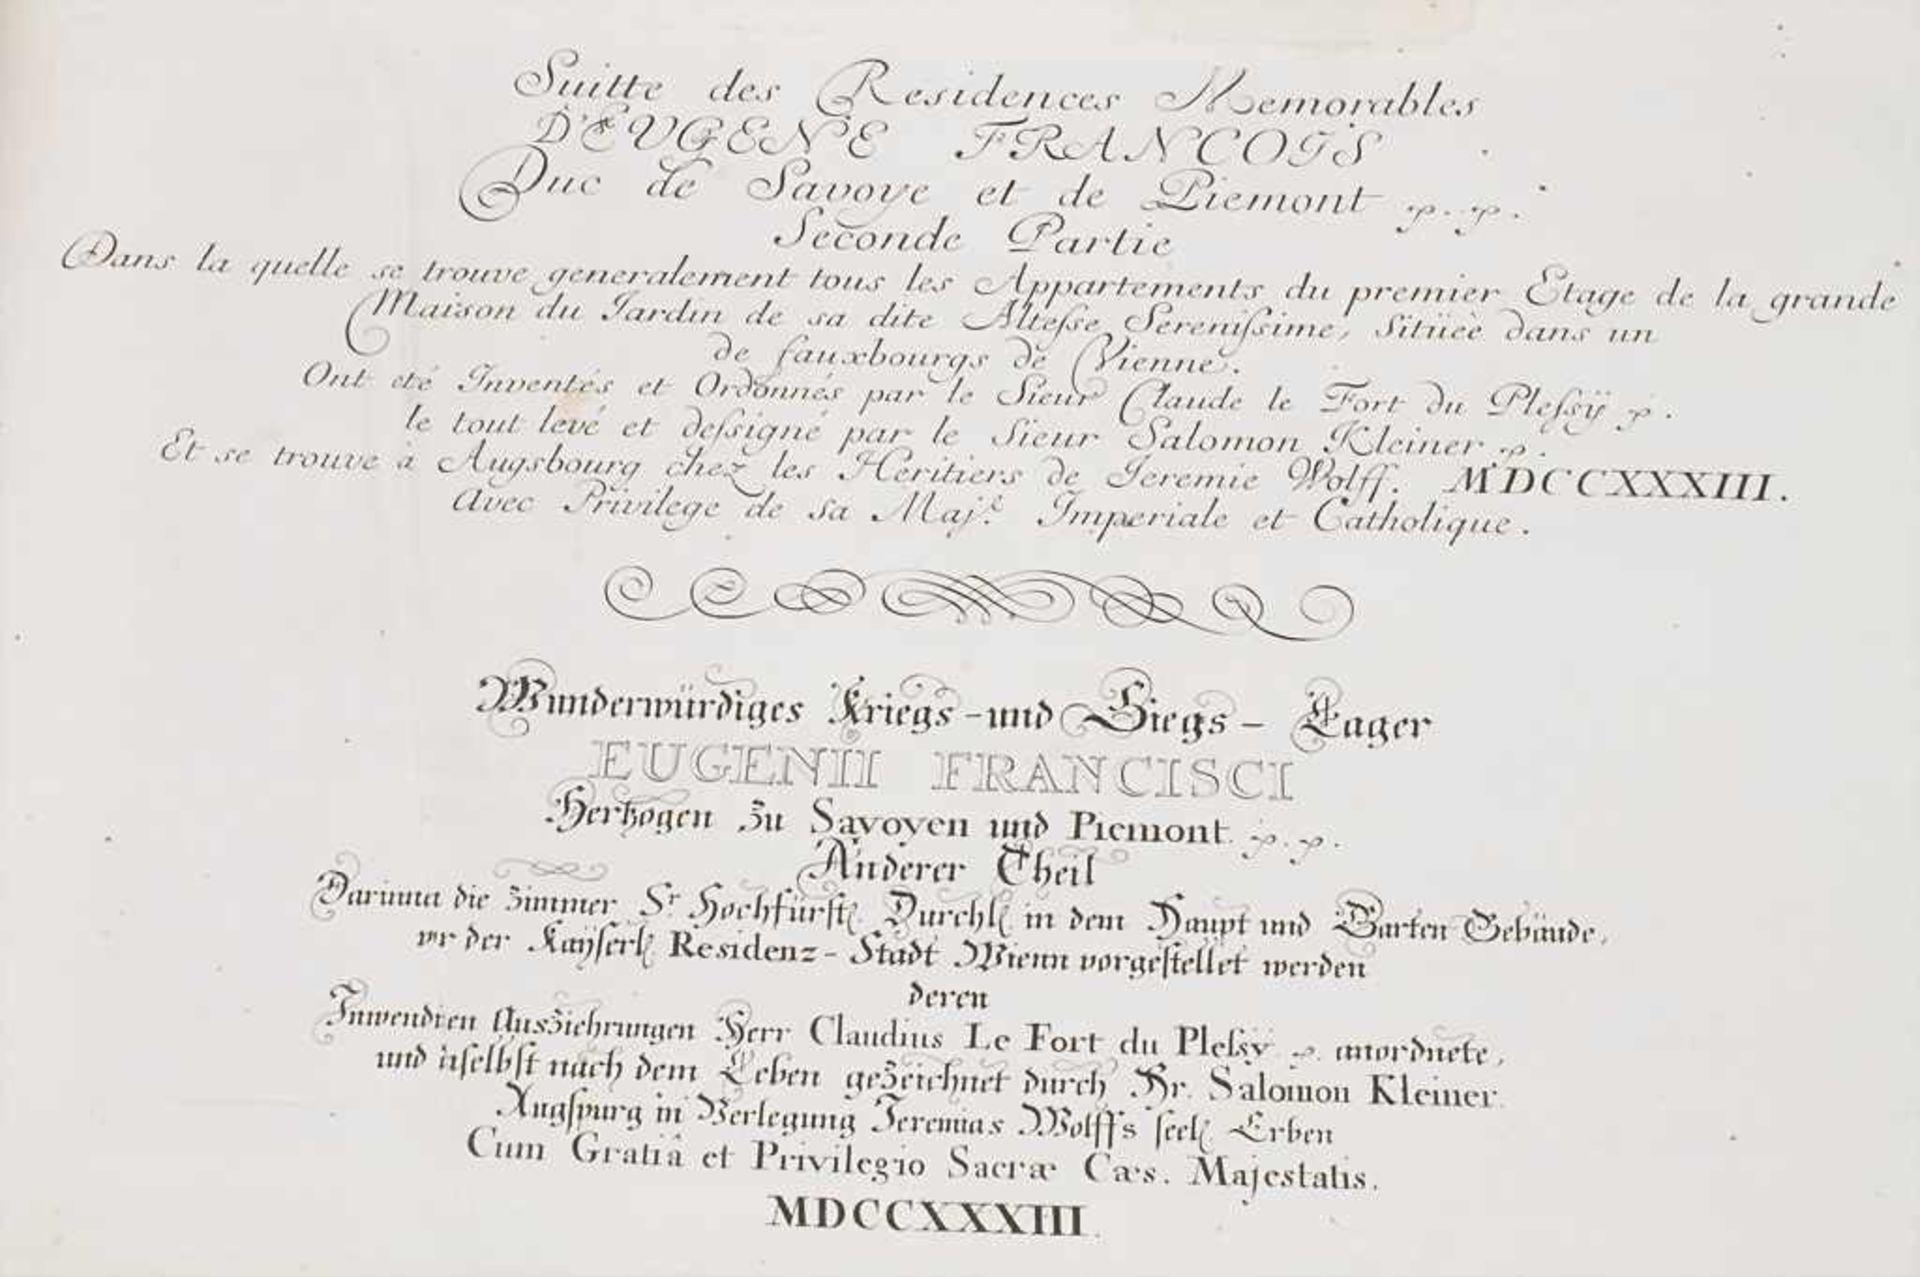 Suitte des Residences Memorables
D'EUGENE FRANCOIS
Duc de Savoye et de Piemont p. p.
Seconde Partie
Dans la quelle se trouve generalement tous les Appartements du premier Etage de la grande
Maison du Jardin de sa dite Altesse Serenissime, Sitüeè dans un
de fauxbourgs de Vienne.
Ont eté Inventés et Ordonnés par le Sieur Claude le Fort du Plessÿ p.
le tout levé et dessigné par le Sieur Salomon Kleiner p.
Et se trouve à Augsbourg chez les Heritiers de Jeremie Wolff. MDCCXXXIII.
avec Privilege de sa Maj.te Imperiale et Catholique.
Wunderwürdiges Kriegs-und Siegs-Lager
EUGENII FRANCISCI
Hertzogen zu Savoyen und Piemont p. p.
Anderer Theil
Darinna die Zimmer Sr Hochfürstl. Durchl. in dem Haupt und Garten Gebäude,
vor der Kaÿserl. Residenz-Stadt Wienn vorgestellet werden
deren
Inwendien Ausziehrungen Herr Claudius Le Fort du Plessy p. anordnete,
und aselbst nach dem Leben gezeichnet durch Hr. Salomon Kleiner.
Augspurg in Verlegung Jeremias Wolffs seel. Erben
Cum Gratiâ et Privilegio Sacræ Cæs. Majestatis.
MDCCXXXIII.